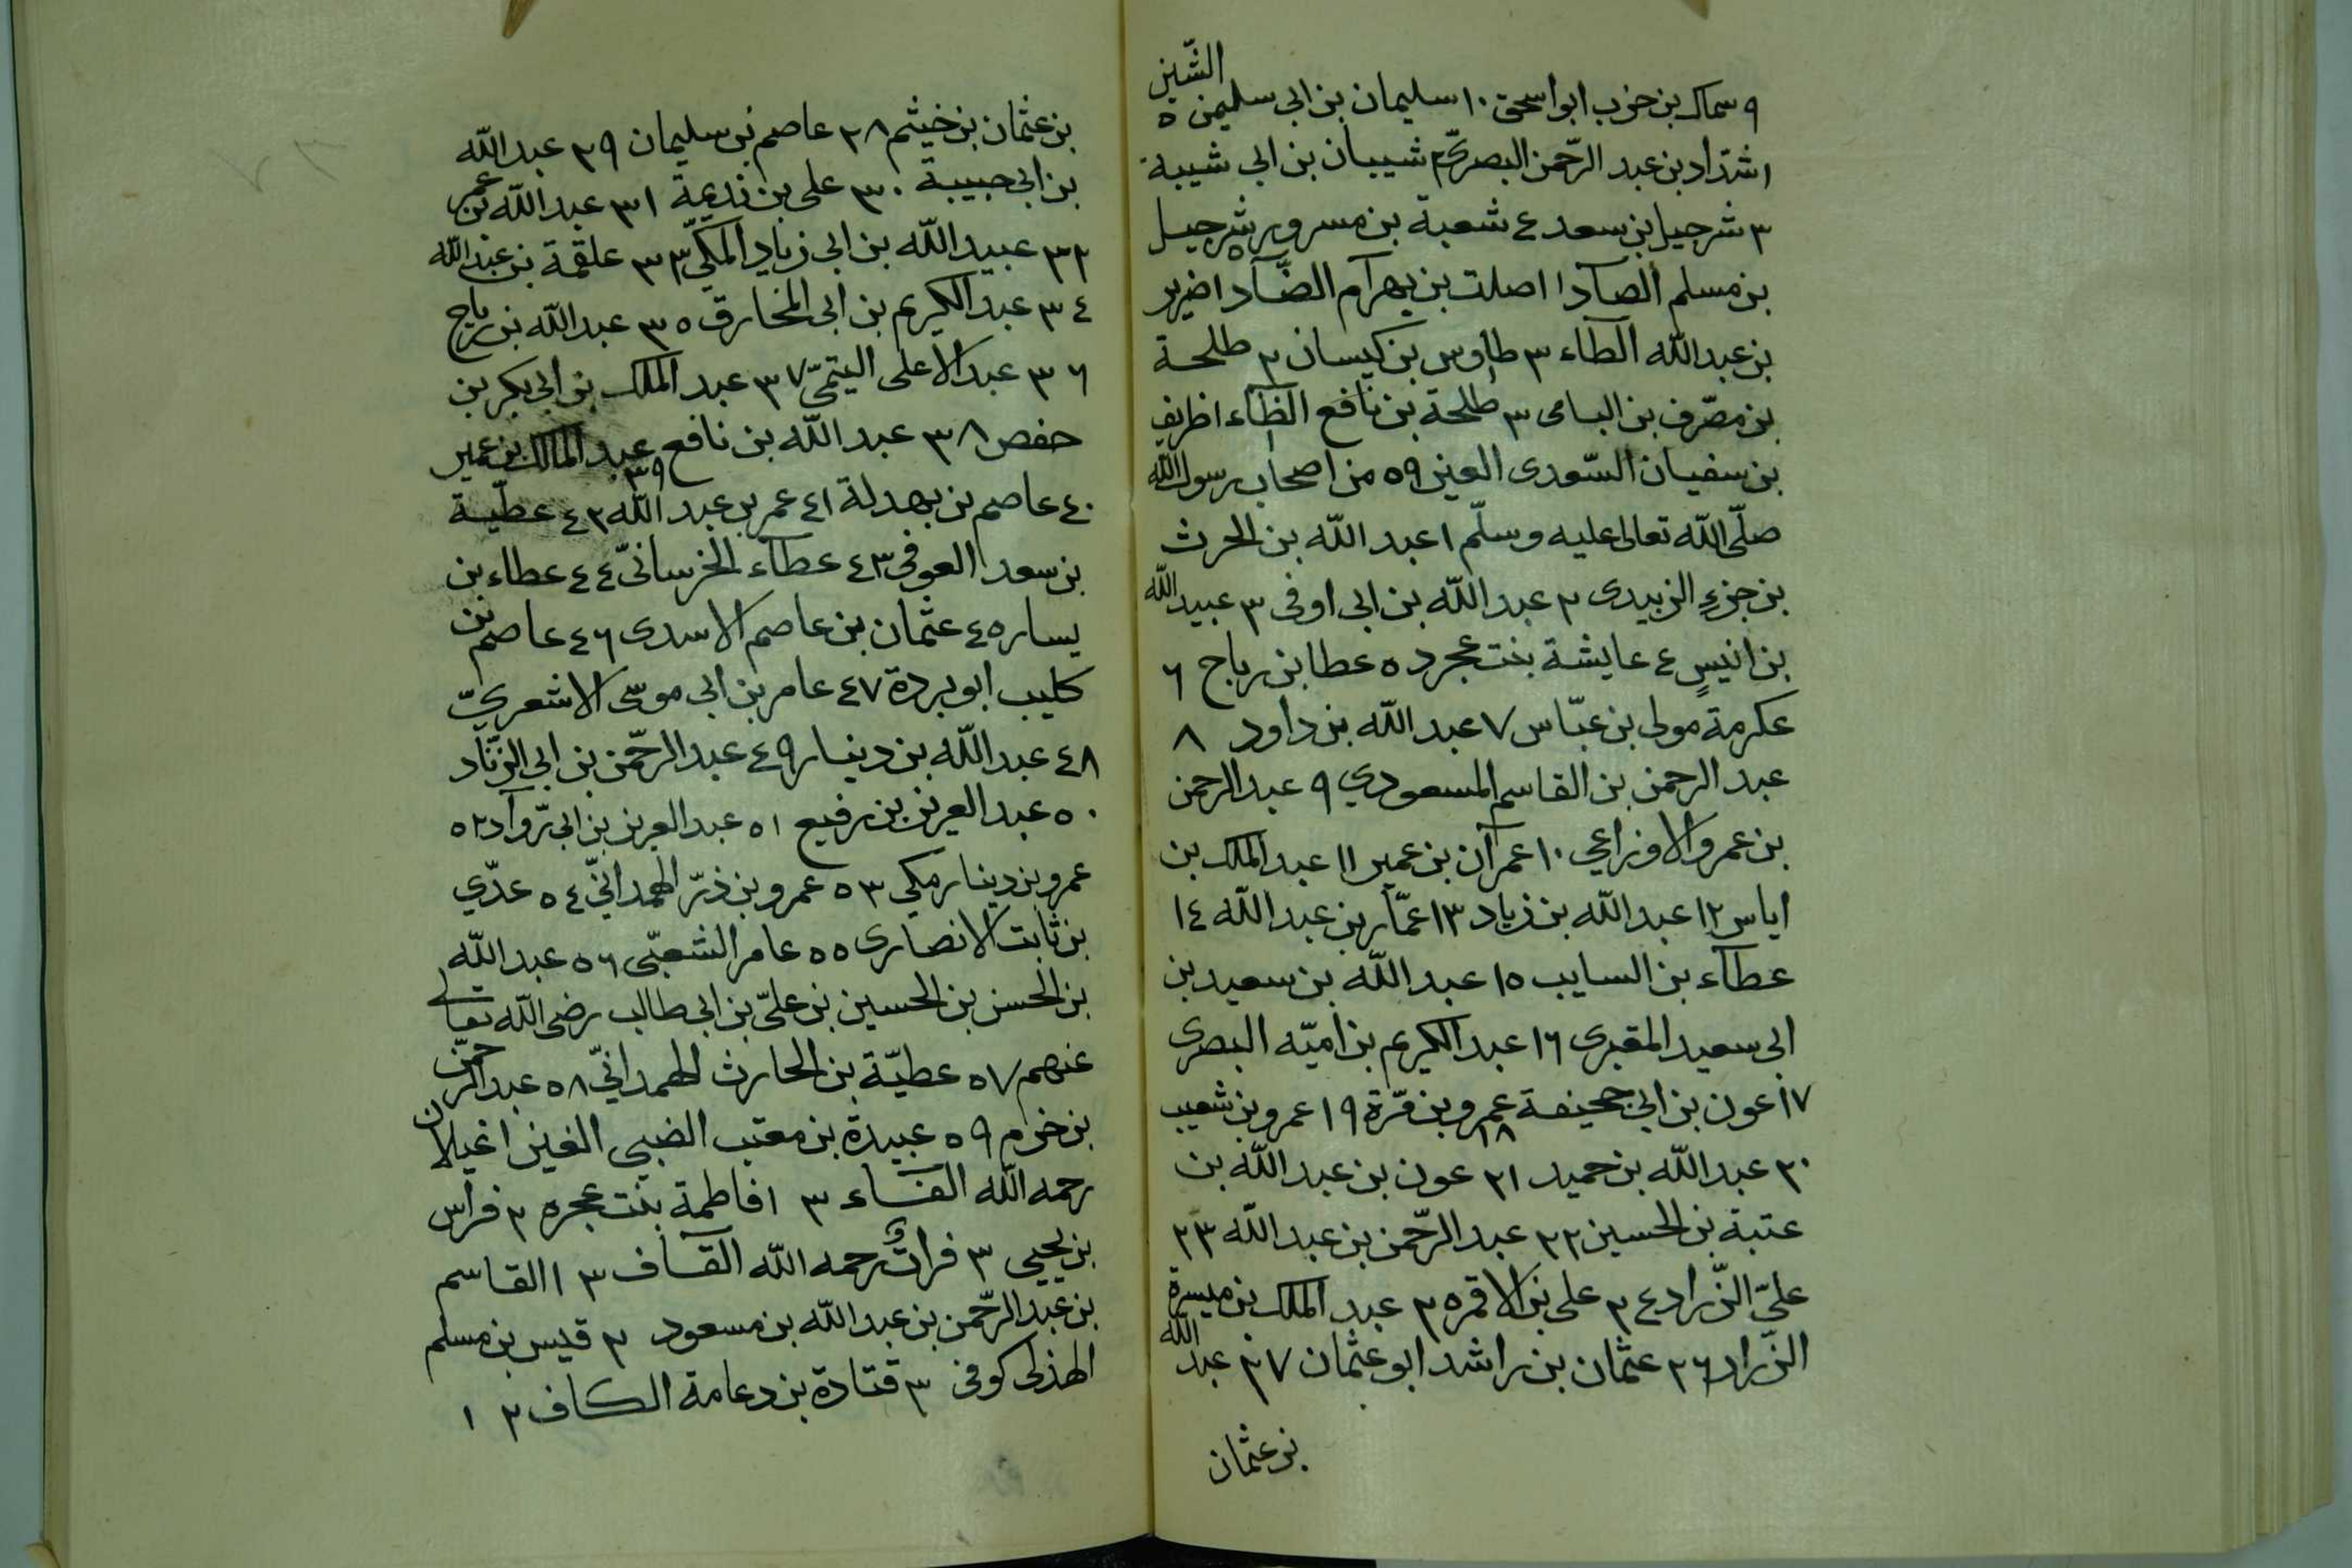 ٩ سماك بن حرب ابو اسحق ١٠ سليمان بن ابى سليمن ٥ الشّين
١ شدّاد بن عبد الرّحمن البصرىّ ٢ شيبان بن ابى شيبة
٣ شرحبيل بن سعد ٤ شعبة بن مسرور ٥ شرجيل
بن مسلم الصاد ١ ا صلت بن بهرام الضّاد ا ضرير
بن عبد اللّه الطاء ٣ طاوس بن كيسان ٢ طلحة
بن مصّرف بن اليامى ٣ طلحة بن نافع الظاء ا ظريف
بن سفيان السّعدى العين ٥٩ من اصحاب رسول اللّه
صلّى اللّه تعالى عليه وسلّم ١ عبد اللّه بن الحرث
بن جزءٍ الزبيدى ٢ عبد اللّه بن ابى اوفى ٣ عبيد اللّه
بن انيسٍ ٤ عايشة بنت عجرد ٥ عطا بن رباح ٦
عكرمة مولى بن عبّاس ٧ عبد اللّه بن داود ٨
عبد الرحمن بن القاسم المسعودي ٩ عبد الرحمن
بن عمرو الاوزاعي ١٠ عمران بن عمير ١١ عبد الملك بن
اياس ١٢ عبد اللّه بن زياد ١٣ عمّار بن عبد اللّه ١٤
عطآء بن السايب ١٥ عبد اللّه بن سعيد بن
ابى سعيد المقبرى ١٦ عبد الكريم بن اميّه البصرى
١٧ عون بن ابى جحيفة ١٨ عمرو بن مرّة ١٩ عمرو بن شعيب
٢٠ عبد اللّه بن حميد ٢١ عون بن عبد اللّه بن
عتبة بن الحسين ٢٢ عبد الرّحمن بن عبد اللّه ٢٣
علىّ الزّراد ٢٤ على بن الاقمر ٢٥ عبد الملك بن ميسرة
الزّراد ٢٦ عثمان بن راشد ابو عثمان ٢٧ عبد اللّه
بن عثمان
بن عثمان بن خيثم ٢٨ عاصم بن سليمان ٢٩ عبد اللّه
بن ابى حبيبة ٣٠ على بن نديمة ٣١ عبد اللّه بن عمر
٣٢ عبيد اللّه بن ابى زياد المكىّ ٣٣ علقمة بن عبد اللّه
٣٤ عبد الكريم بن ابى المخارق ٣٥ عبد اللّه بن رباح
٣٦ عبد الاعلى التيمىّ ٣٧ عبد الملك بن ابى بكر بن
حفص ٣٨ عبد اللّه بن نافع ٣٩ عبد الملك بن عمير
٤٠ عاصم بن بهدلة ٤١ عمر بن عبد اللّه ٤٢ عطيّة
بن سعد العوفى ٤٣ عطآء الخرسانىّ ٤٤ عطاء بن
يسار ٤٥ عثمان بن عاصم الاسدى ٤٦ عاصم بن
كليب ابو بردة ٤٧ عامر بن ابى موسى الاشعريّ
٤٨ عبد اللّه بن دينار ٤٩ عبد الرّحمن بن ابى الزّناد
٥٠ عبد العزيز بن رفيع ٥١ عبد العزيز بن ابى روّاد ٥٢
عمرو بن دينار مكي ٥٣ عمرو بن ذرّ الهمدانيّ ٥٤ عدّي
بن ثابت الانصارى ٥٥ عامر الشعبّى ٥٦ عبد اللّه
بن الحسن بن الحسين بن علىّ بن ابى طالب رضى اللّه تعالى
عنهم ٥٧ عطيّة بن الحارث الهمدانيّ ٥٨ عبد الرّحمن
بن حزم ٥٩ عبيدة بن معتب الضبي الغين ا غيلان
رحمه اللّه الفاء ٣ ١ فاطمة بنت عجره ٢ فراس
بن يحيى ٣ فرات رحمه اللّه القاف ٣ ١ القاسم
بن عبد الرّحمن بن عبد اللّه بن مسعود ٢ قيس بن مسلم
الهذلى كوفى ٣ قتادة بن دعامة الكاف ٢ ١